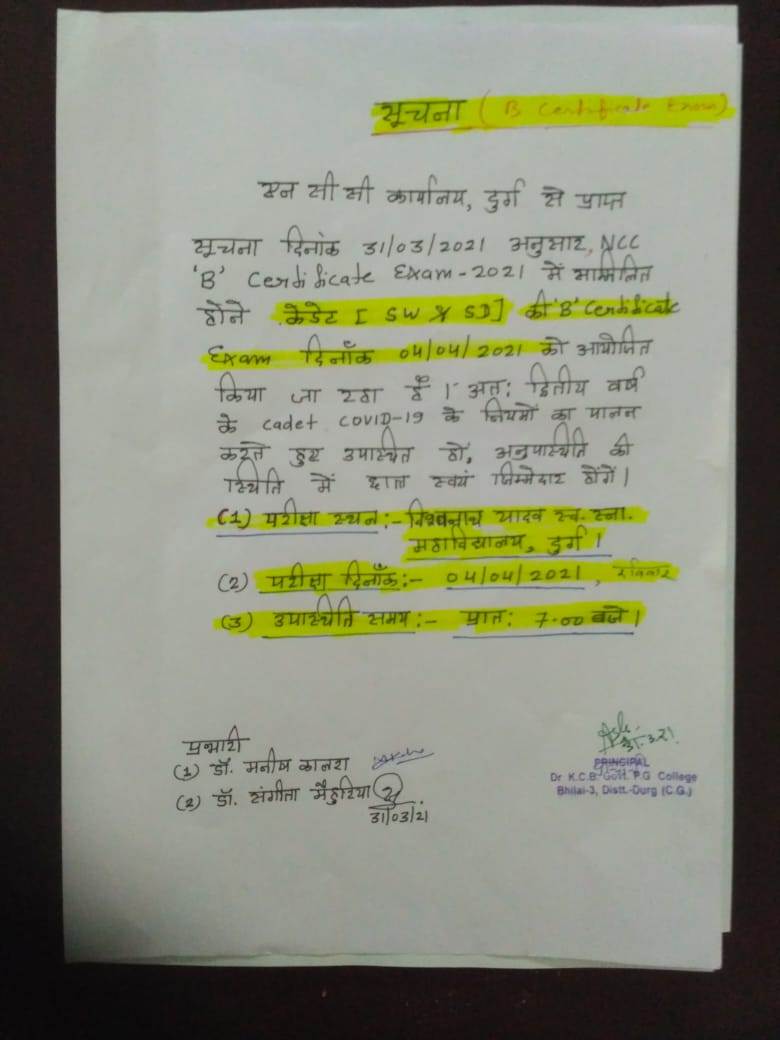 सूचना ( B Certificate Exam)
एन सी सी कार्यालय, दुर्ग से प्राप्त
सूचना दिनांक 31/03/2021 अनुसार, NCC
'B' Certificate Exam-2021 में सम्मिलित
होने केडेट [ SW & SD] की 'B' Certificate
Exam दिनाँक 04/04/2021 को आयोजित
किया जा रहा हैं । अतः द्वितीय वर्ष
के cadet COVID-19 के नियमों का पालन
करते हुए उपस्थित हों, अनुपस्थिति की
स्थिति में छात्र स्वयं जिम्मेदार होंगें।
(1) परीक्षा स्थल :- विश्वनाथ यादव स्व. स्ना.
महाविद्यालय, दुर्ग ।
(2) परीक्षा दिनाँक :- 04/04/2021, रविवार
(3) उपस्थिति समय :- प्रातः 7.00 बजे ।
प्रभारी
(1) डॉ. मनीष कालरा
(2) डॉ. संगीता मैहुरिया
31/03/21
31.3.21
PRINCIPAL
Dr K.C.B. Govt. P.G College
Bhilai-3, Distt.-Durg (C.G.)